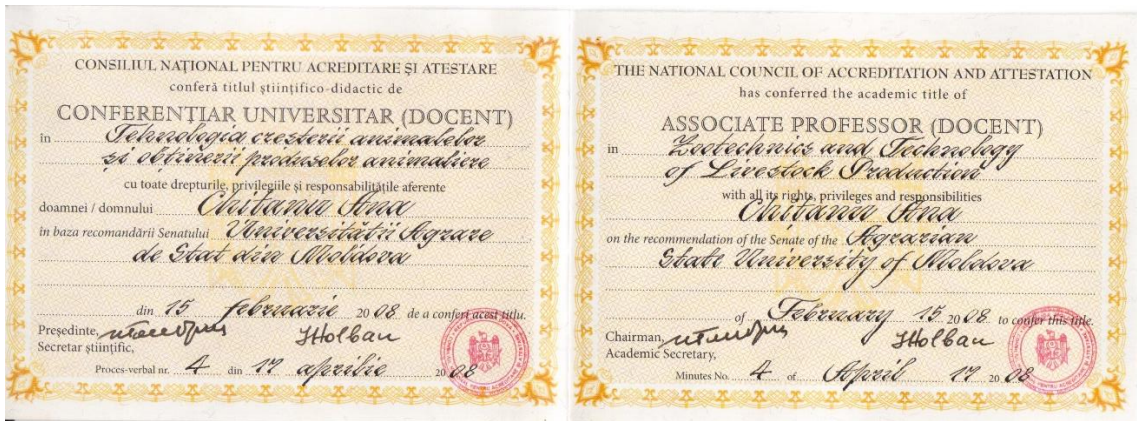 CONSILIUL NAȚIONAL PENTRU ACREDITARE ȘI ATESTARE
conferă titlul științifico-didactic de
CONFERENȚIAR UNIVERSITAR (DOCENT)
în Tehnologia creșterii animalelor
și obținerii produselor animaliere
cu toate drepturile, privilegiile și responsabilitățile aferente
doamnei / domnului Chitanu Ana
în baza recomandării Senatului Universității Agrare
de Stat din Moldova
din 15 februarie 2008 de a conferi acest titlu.
Președinte,
Secretar științific, JHolban
Proces-verbal nr. 4 din 17 aprilie 2008
THE NATIONAL COUNCIL OF ACCREDITATION AND ATTESTATION
has conferred the academic title of
ASSOCIATE PROFESSOR (DOCENT)
in Zootechnics and Technology
of Livestock Production
with all its rights, privileges and responsibilities
Chitanu Ana
on the recommendation of the Senate of the Agrarian
State University of Moldova
of February 15 2008 to confer this title.
Chairman,
Academic Secretary, JHolban
Minutes No. 4 of April 17 2008